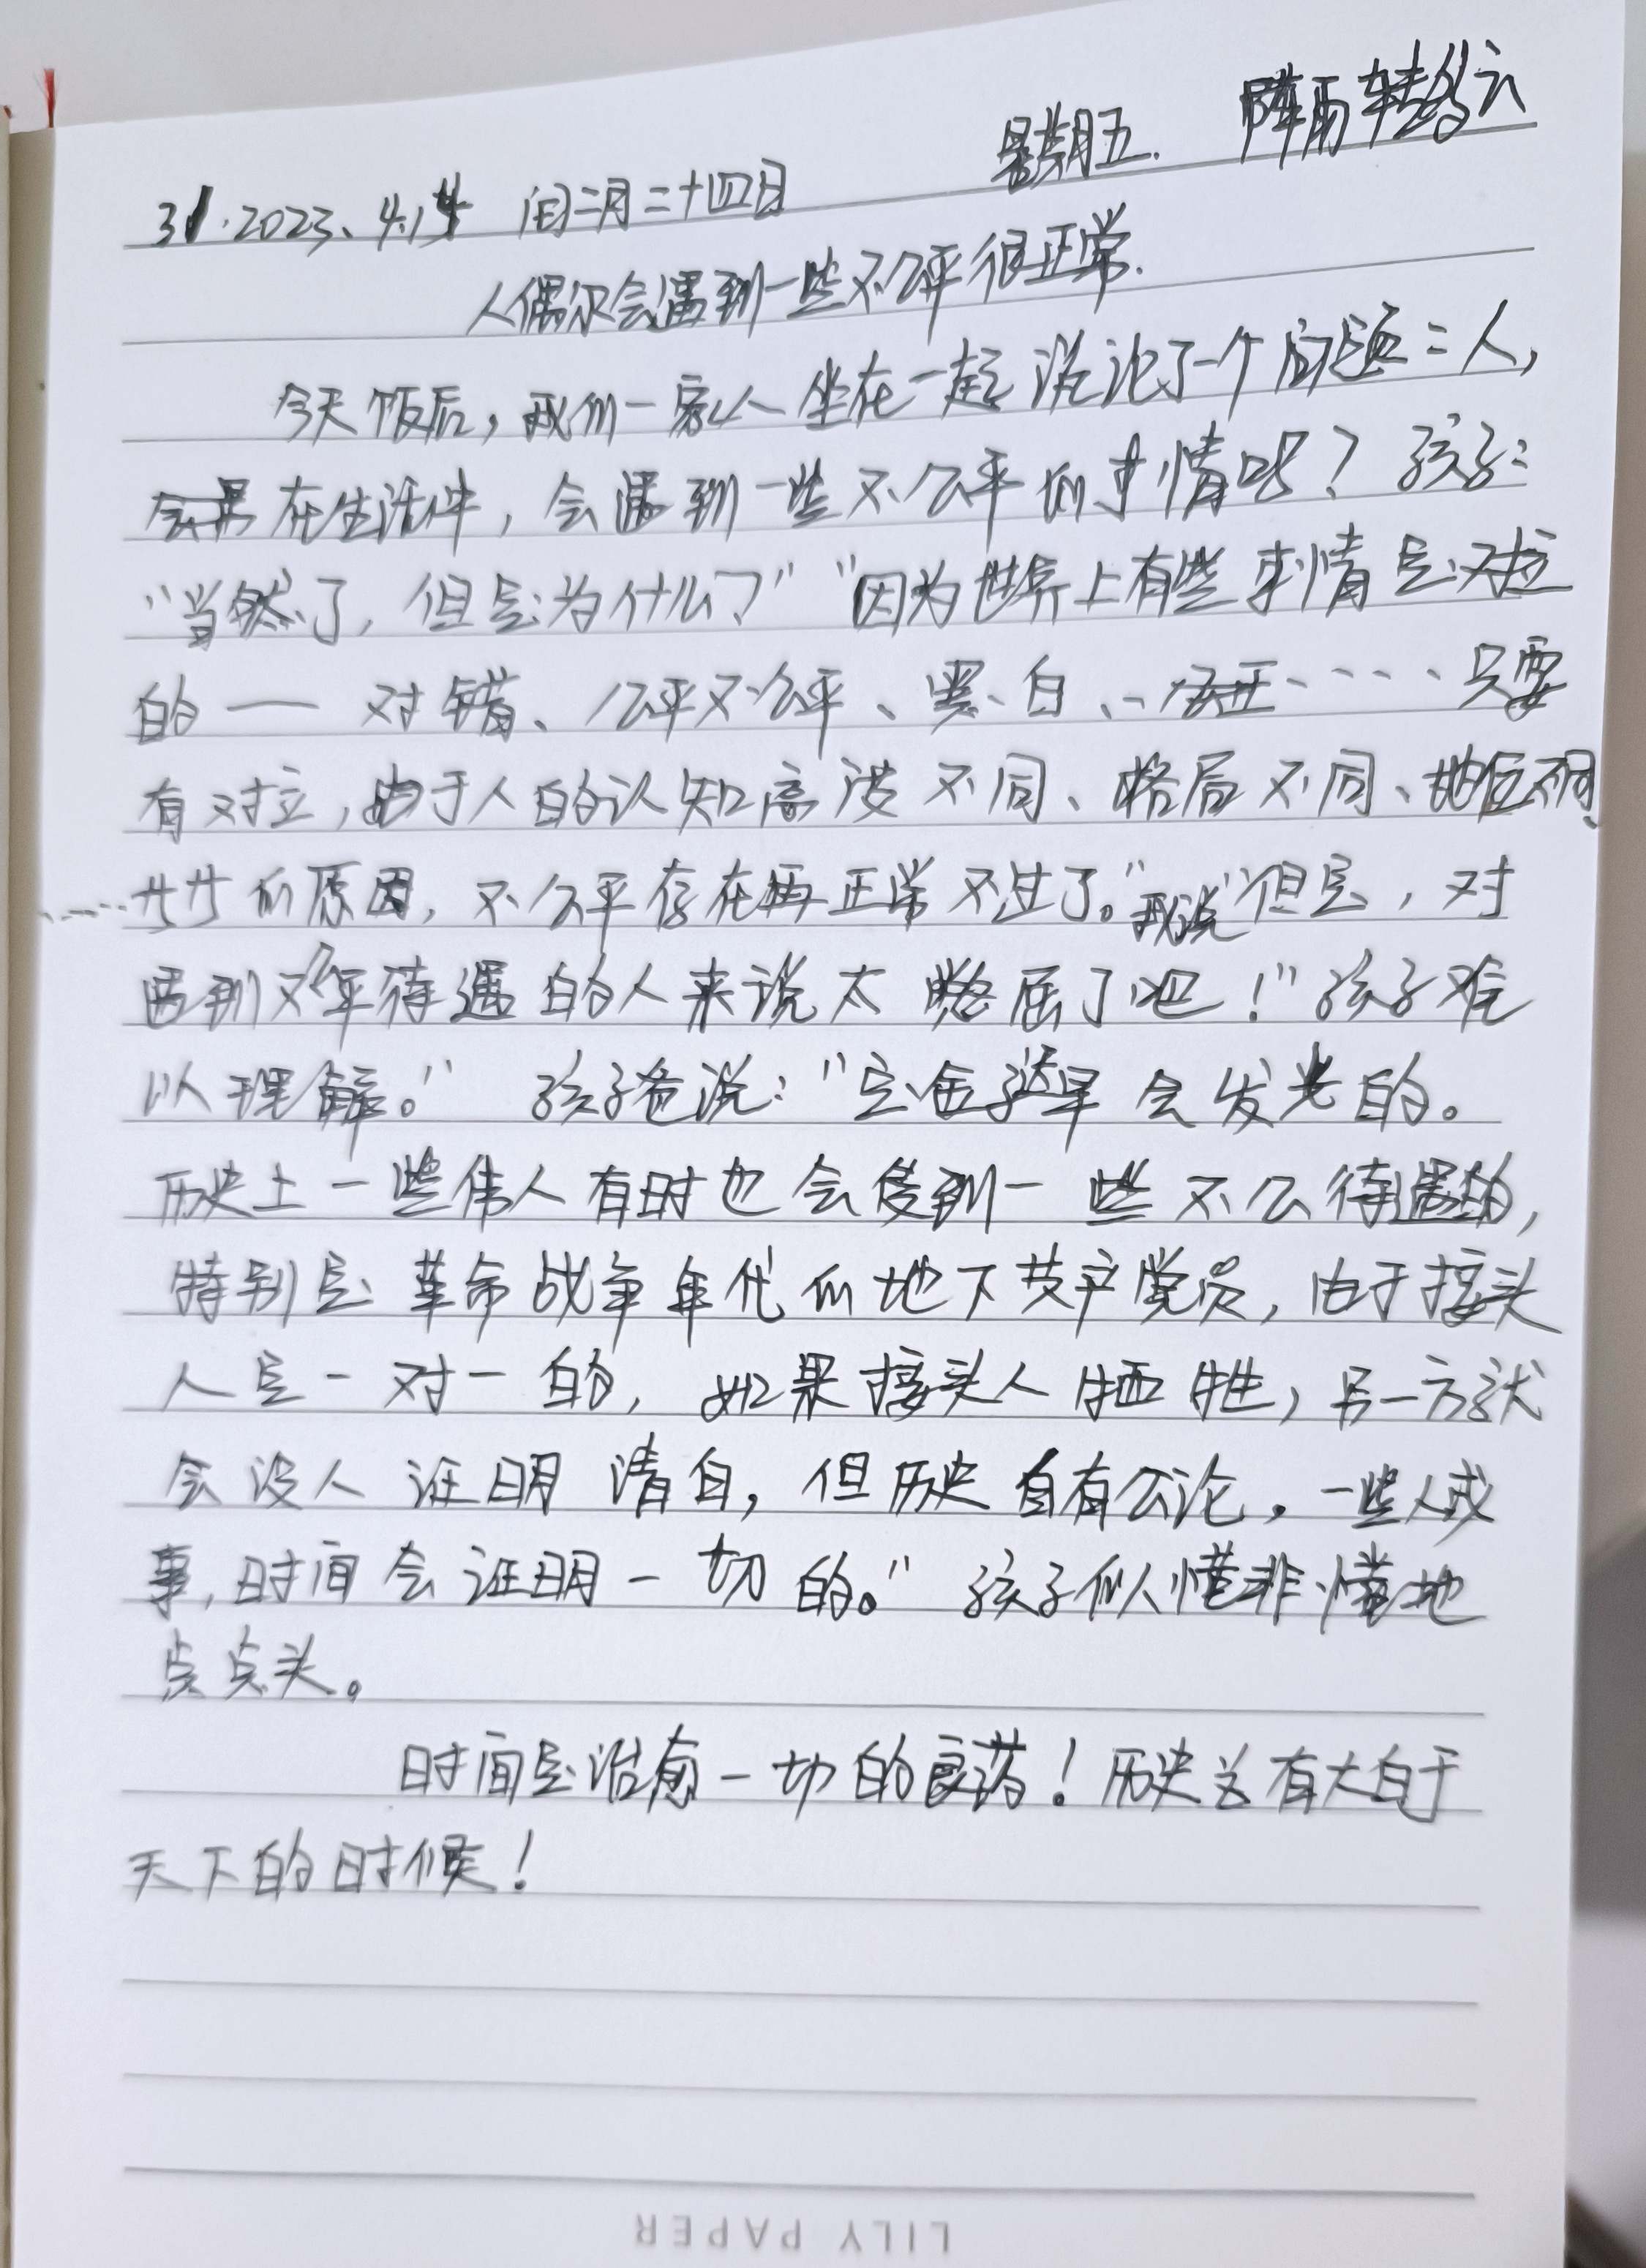 星期五. 阵雨转多云
31.2023、4.14 闰二月二十四日
人偶尔会遇到一些不公平很正常.
今天饭后，我们一家人坐在一起谈论了一个问题：人，
在生活中，会遇到一些不公平的事情吗？孩子：
“当然了，但是为什么了”“因为世界上有些事情是对立
的——对错、公平不公平、黑、白、……只要
有对立，由于人的认知高度不同、格局不同、地位不同、
……廿廿的原因，不公平存在再正常不过了。”我说“但是，对
遇到不公平待遇的人来说太 屈了吧！”孩子难
以理解。” 孩子爸说：“是金子迟早会发光的。
历史上一些伟人有时也会受到一些不公待遇的，
特别是革命战争年代的地下共产党员，由于接头
人是一对一的，如果接头人牺牲，另一方就
会没人证明清白，但历史自有公论。一些人或
事，时间会证明一切的。”孩子似懂非懂地
点点头。
时间是治愈一切的良药！历史总有大白于
天下的时候！
LILY PAPER